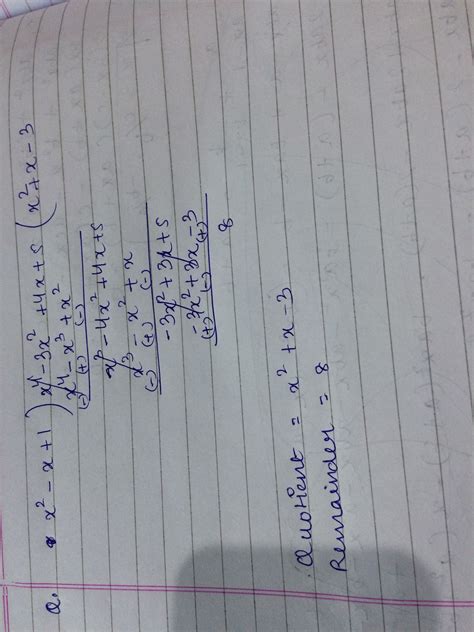 Q. x² - x + 1 ) x⁴ - 3x² + 4x + 5 ( x² + x - 3
x⁴ - x³ + x²
(-) (+) (-)
x³ - 4x² + 4x + 5
x³ - x² + x
(-) (+) (-)
-3x² + 3x + 5
-3x² + 3x - 3
(+) (-) (+)
8
Quotient = x² + x - 3
Remainder = 8